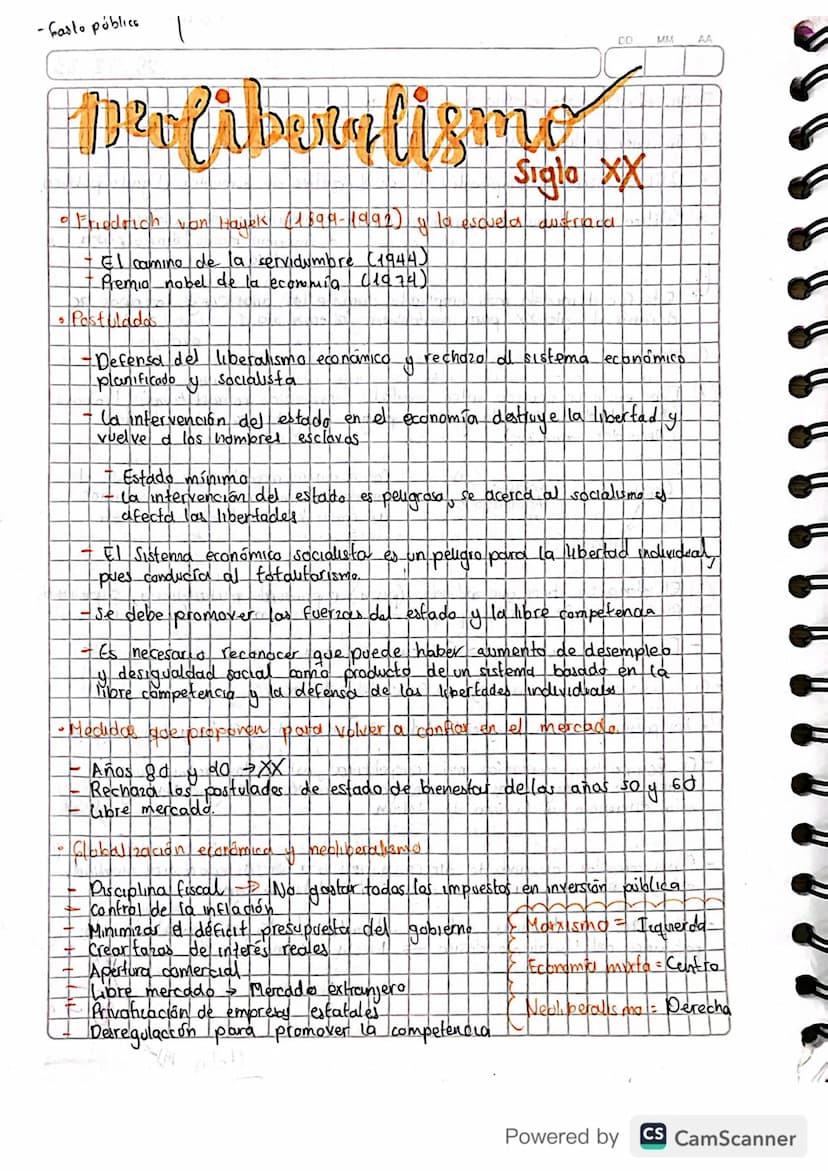 - Gasto público
DD MM AA
Neoliberalismo
Siglo XX
• Friedrich von Hayek (1899-1992) y la escuela austriaca
- El camino de la servidumbre (1944)
- Premio nobel de la economía (1974)
• Postulados
- Defensa del liberalismo económico y rechazo al sistema económico
planificado y socialista
- La intervención del estado en el economía destruye la libertad y
vuelve a los hombres esclavos
- Estado mínimo
- La intervención del estado es peligrosa, se acerca al socialismo y
afecta las libertades
- El Sistema económico socialista es un peligro para la libertad individual,
pues conducía al totalitarismo.
- Se debe promover las fuerzas del estado y la libre competencia
- Es necesario reconocer que puede haber aumento de desempleo
y desigualdad social como producto de un sistema basado en la
libre competencia y la defensa de las libertades individuales
• Medidas que proponen para volver a confiar en el mercado.
- Años 80 y 90 → XX
- Rechaza los postulados de estado de bienestar de los años 50 y 60
- Libre mercado.
• Globalización económica y neoliberalismo
- Disciplina fiscal → No gastar todos los impuestos en inversión pública
- Control de la inflación
- Minimizar el déficit presupuesta del gobierno
- Crear tazas de interés reales
- Apertura comercial
- Libre mercado → Mercado extranjero
- Privatización de empresas estatales
- Desregulación para promover la competencia
Marxismo = Izquerda
Economía mixta = Centro
Neoliberalismo = Derecha
Powered by CS CamScanner